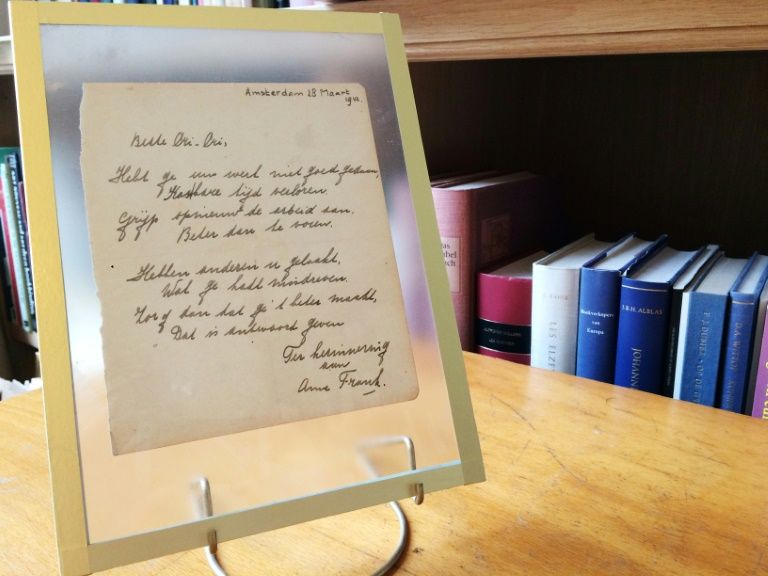 Amsterdam 28 Maart
1942.
Beste Cri-Cri,
Hebt ge uw werk niet goed gedaan,
Kostbare tijd verloren.
Grijp opnieuw de arbeid aan.
Beter dan te voren.
Hebben anderen u gelaakt,
Wat ge hadt misdreven.
Zorg dan dat ge 't beter maakt,
Dat is antwoord geven
Ter herinnering
aan
Anne Frank.
LES ELZE
Boekverkopers
van
Europa
J.B.H. ALBLAS
JOHANN
F.J. DUBIEZ